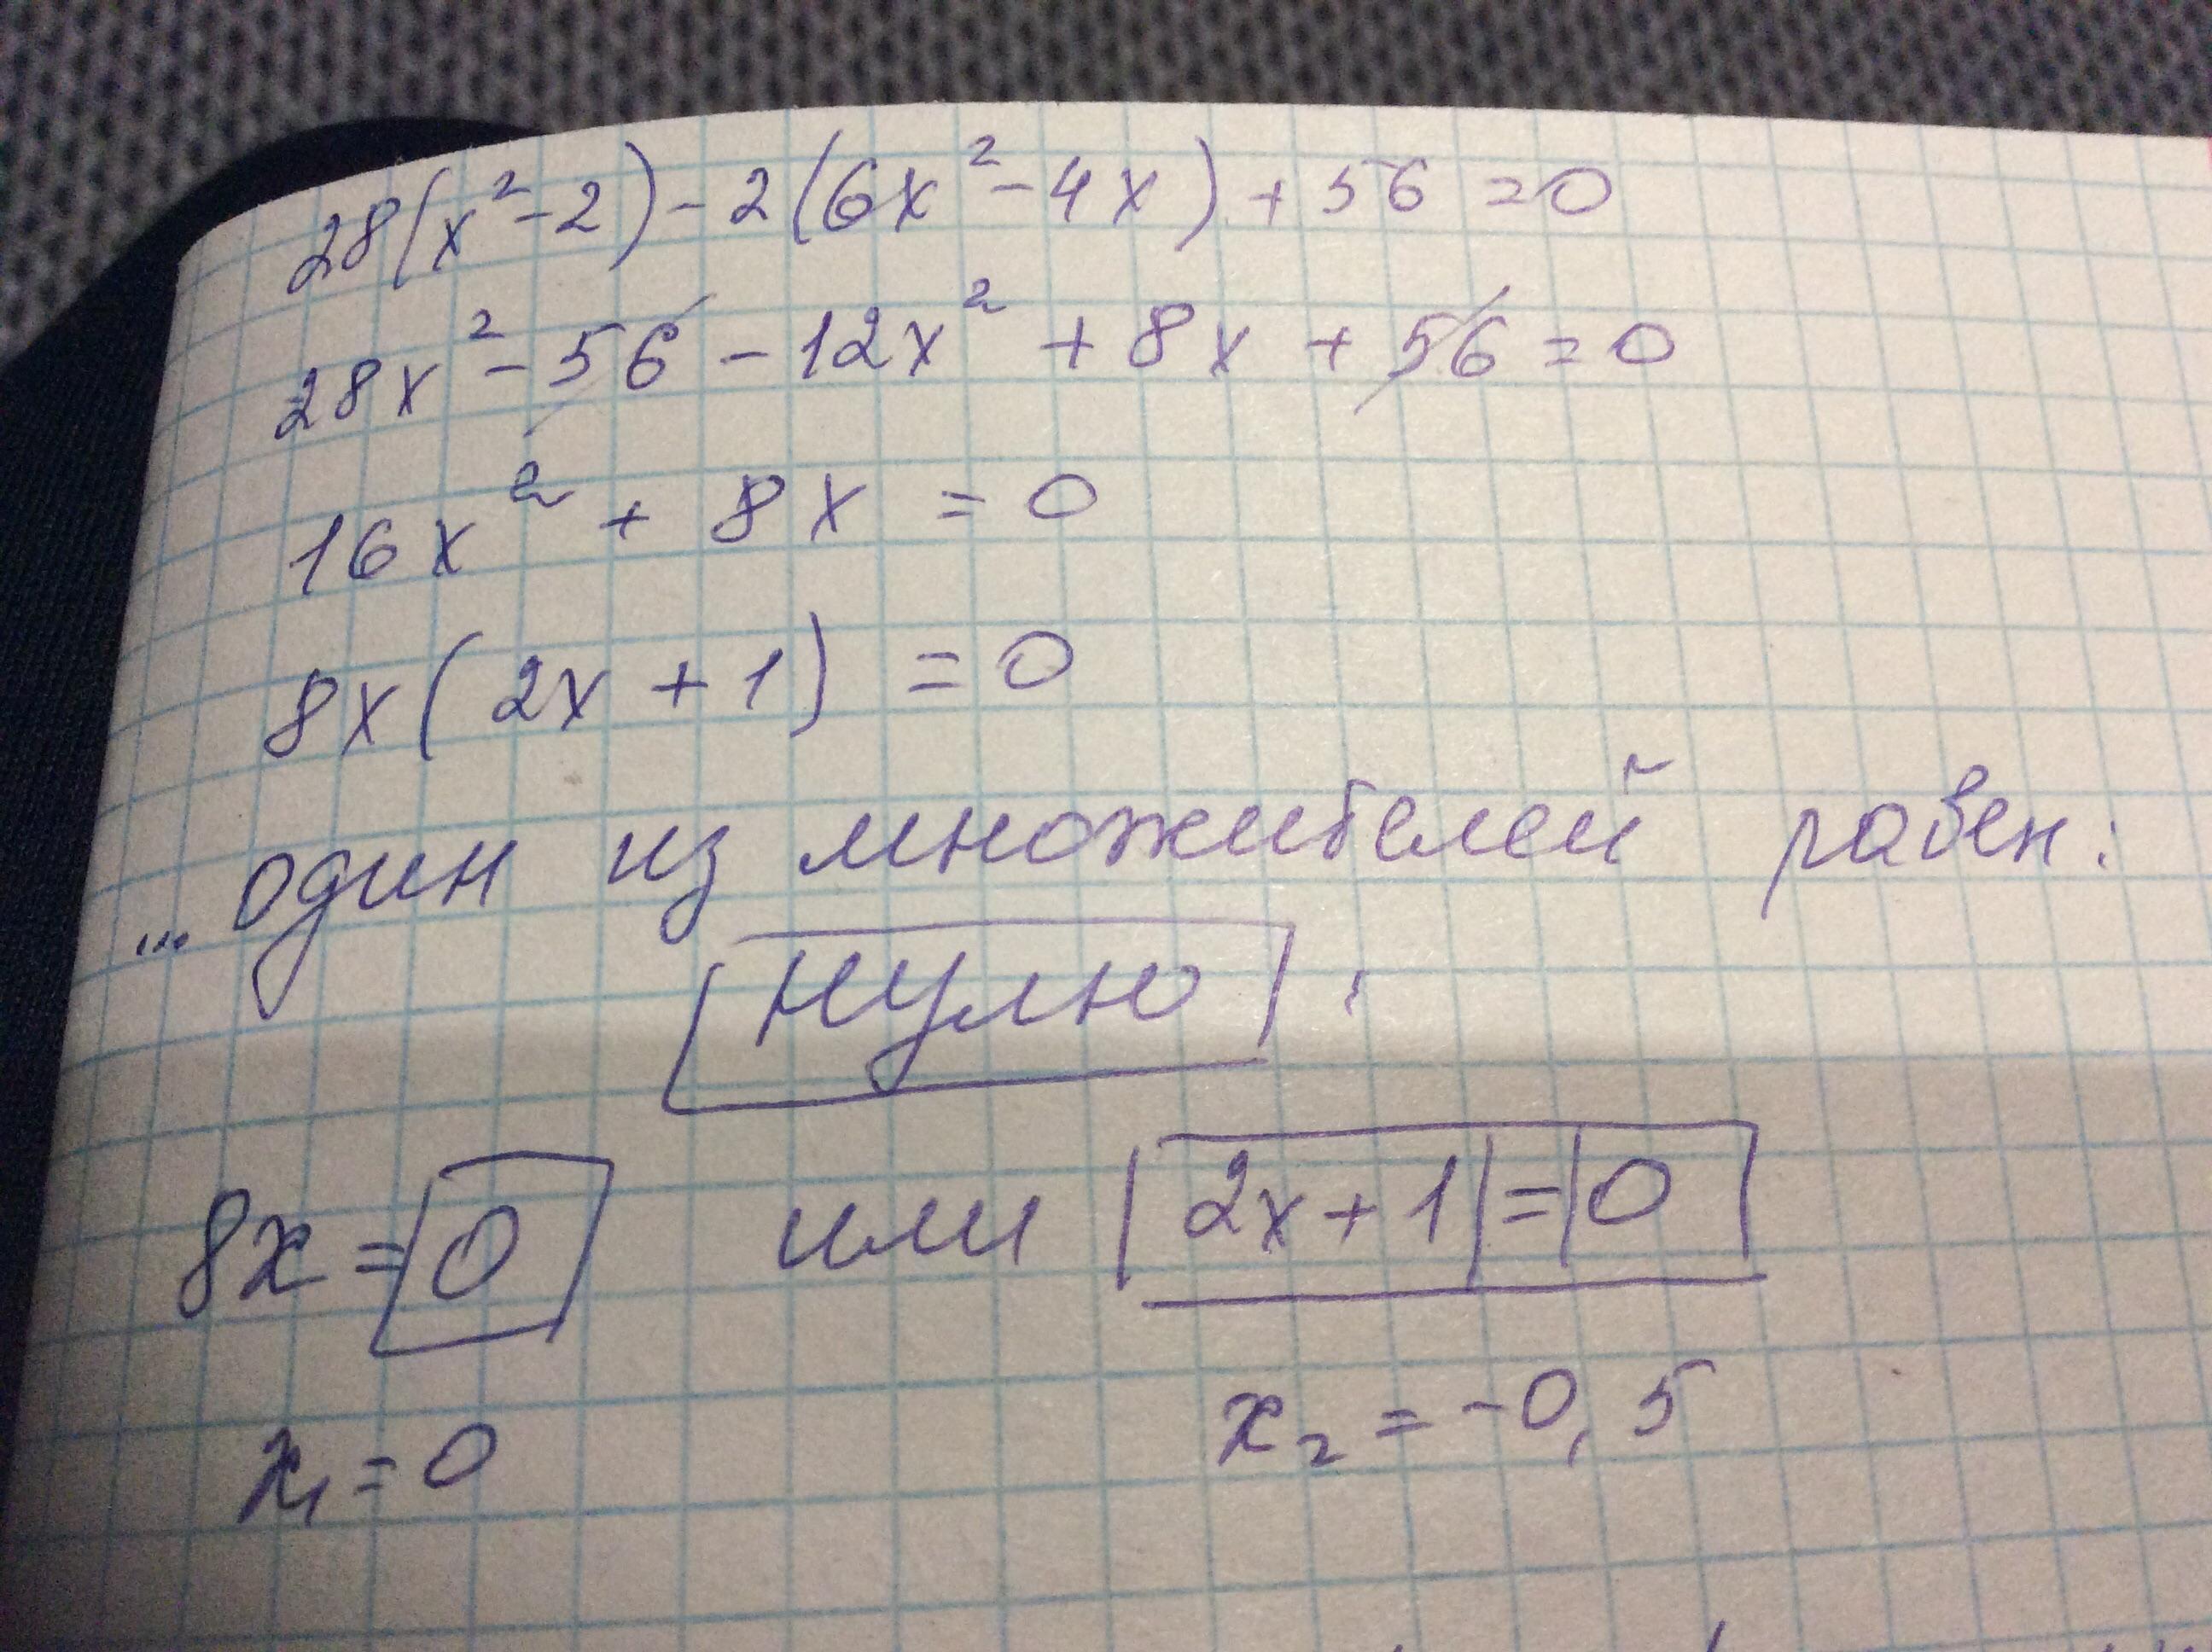 28(x²-2)-2(6x²-4x)+56=0
28x²-56-12x²+8x+56=0
16x²+8x=0
8x(2x+1)=0
...один из множителей равен:
нулю
8x=0 или 2x+1=0
x₁=0 x₂=-0,5